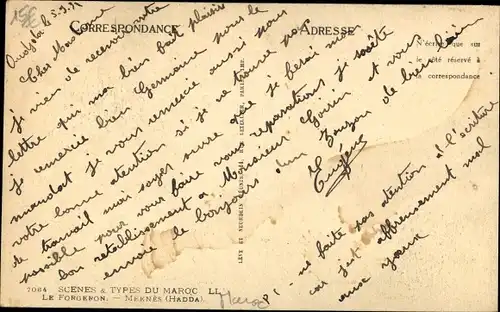 15€
CORRESPONDANCE
ADRESSE
N'écrire que sur
le côté réservé à
la correspondance
Cher Monsieur
je viens de recevoir votre
lettre qui m'a bien fait plaisir
je remercie bien Germaine pour le
mandat je vous remercie aussi pour
votre bonne atention si je ne trouve pas
de travail mais soyez sure que je ferai mon
possible pour vous faire vous reparations je souete
bon retablissement a Monsieur et vous
envoie le bonjours d'un de bien loin
Eugène
P! - ne faite pas atention a l'ecriture
car jai affreusement mal
aux yeux
7064 SCENES & TYPES DU MAROC LL
LE FORGERON. — MEKNÈS (HADDA).
Maroc